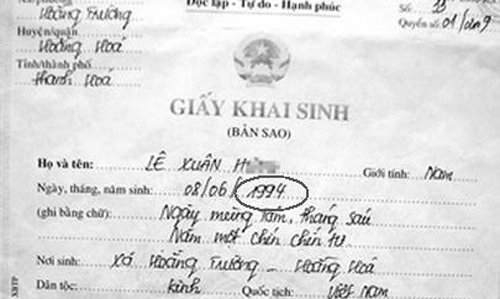 Hoằng Trường Độc lập - Tự do - Hạnh phúc Số: 33
Huyện/quận: Quyển số: 01
Hoằng Hoá
Tỉnh/thành phố:
Thanh Hoá
GIẤY KHAI SINH
(BẢN SAO)
Họ và tên: LÊ XUÂN Giới tính: Nam
Ngày, tháng, năm sinh: 08/06/1994
(ghi bằng chữ): Ngày mùng tám, tháng sáu
Năm một chín chín tư
Nơi sinh: Xã Hoằng Trường - Hoằng Hoá
Dân tộc: kinh Quốc tịch: Việt Nam